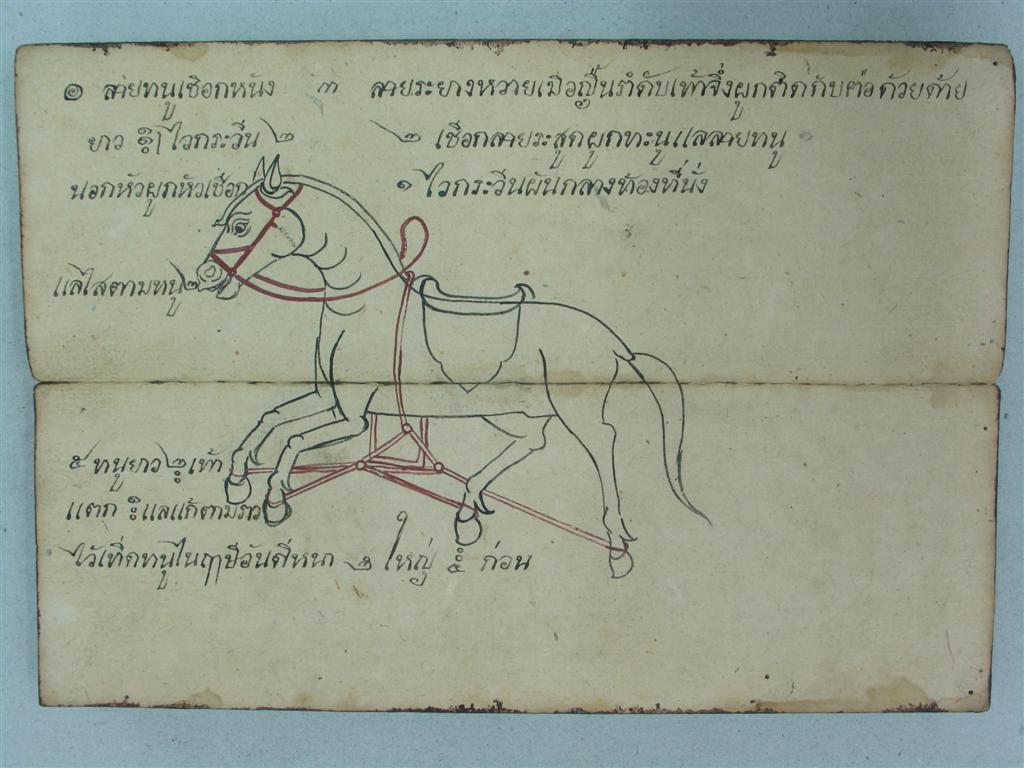 ๑ สายทนูเชือกหนัง ๓ ลายระยางหวายเมือยืนรำดับเท้าจึ่งผูกติดกับต่อด้วยด้าย
ยาว ไวกระวิน ๒ ๒ เชือกสายระสูดผูกทะนูแลสายทนู
นอกหัวผูกหัวเชือก ๑ ไวกระวินผันกลางท้องที่นั่ง
แลไสตามทนู ๒
๕ ทนูยาว เท้า
แตก แลแก้ตามราว
ไว้เทิดทนูใน ๒ ใหญ่ ก่อน